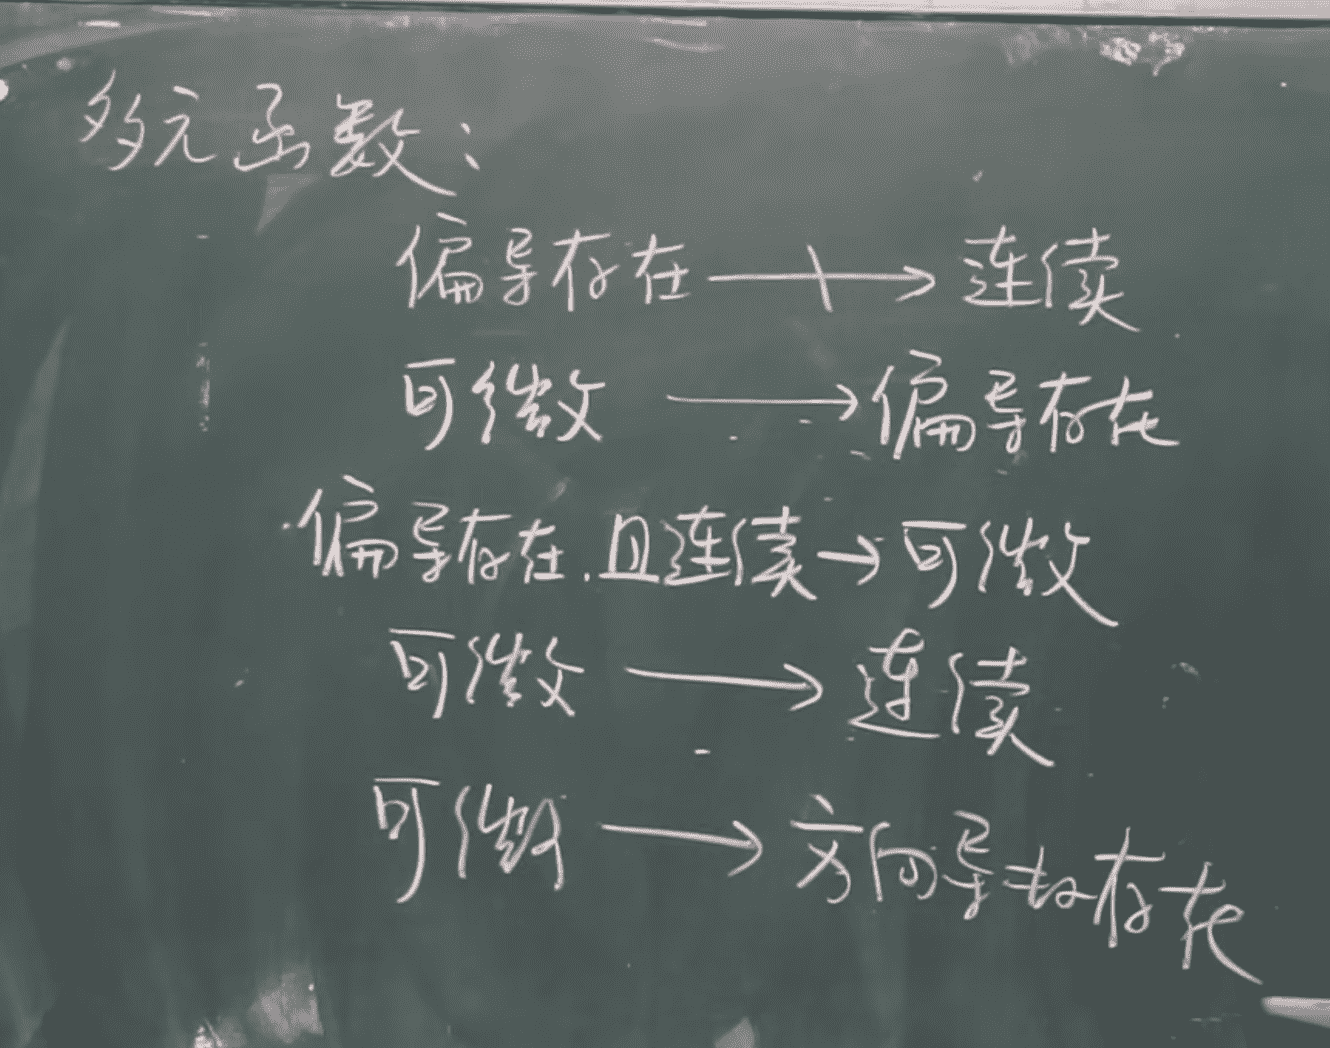 多元函数：
偏导存在 ⇸ 连续
可微 → 偏导存在
偏导存在.且连续 → 可微
可微 → 连续
可微 → 方向导数存在